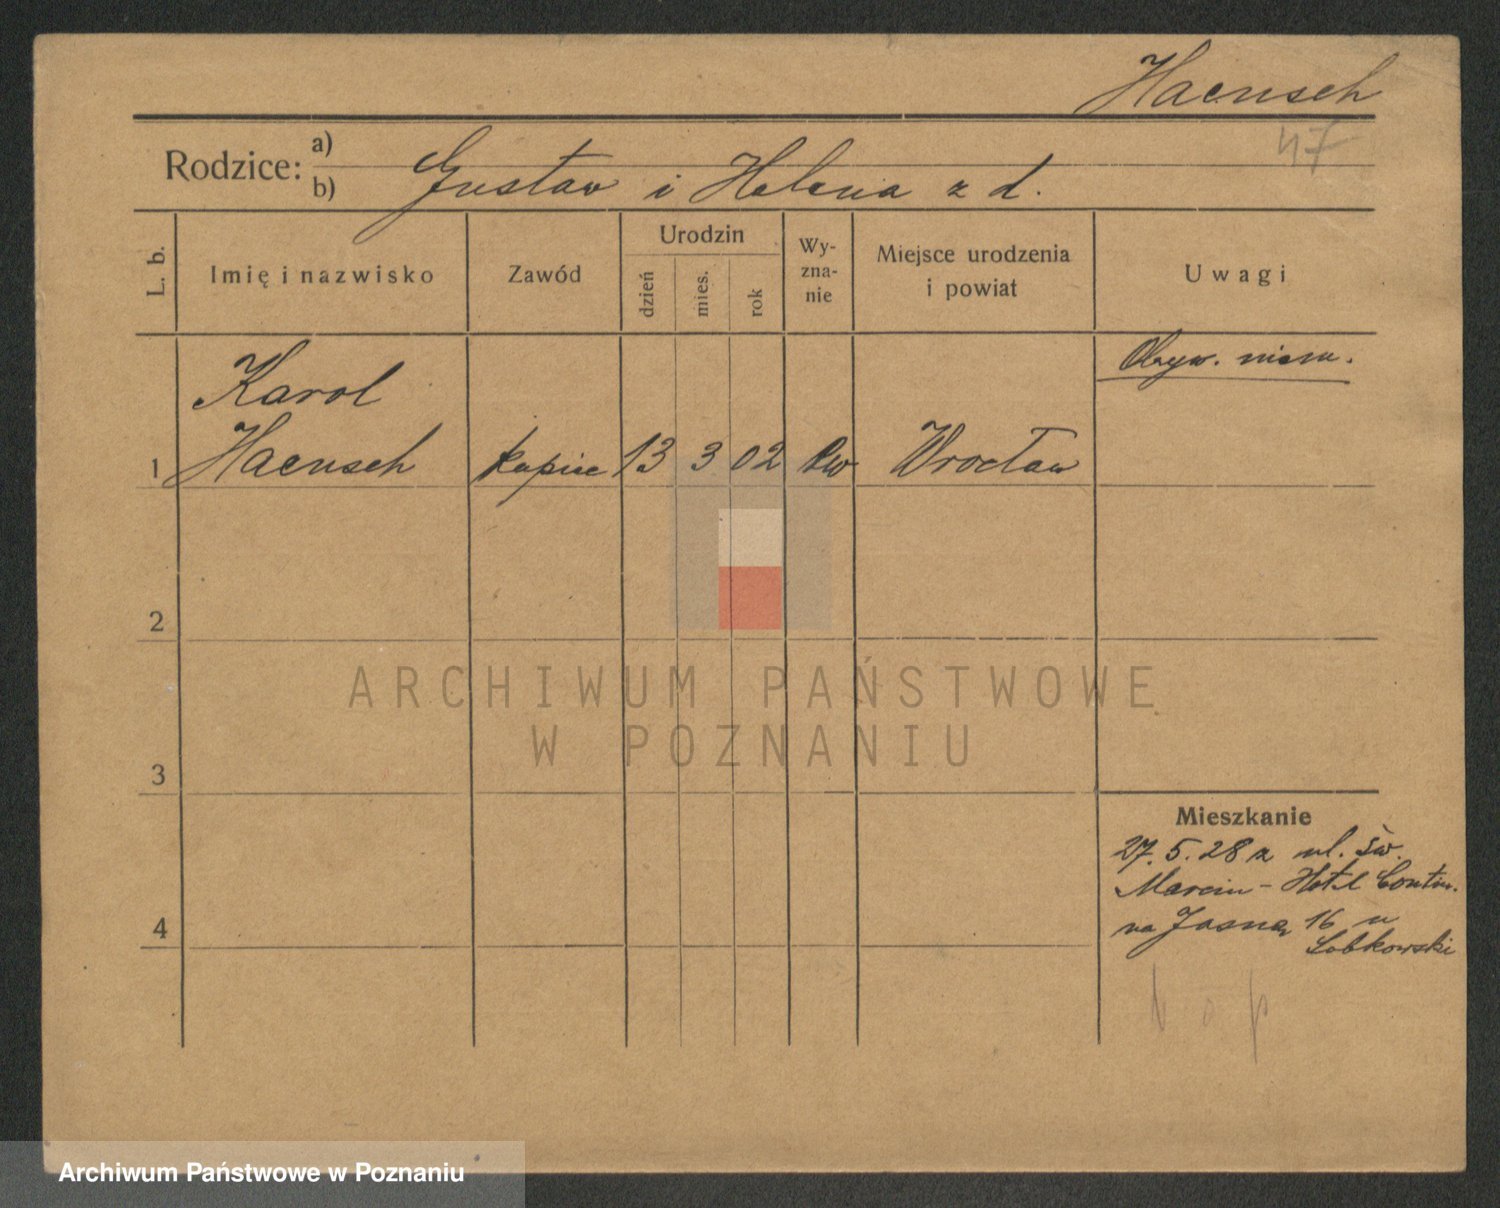 Haensch
47
Rodzice: a)
b) Gustaw i Helena z d.
L. b.
Imię i nazwisko
Zawód
Urodzin
dzień
mies.
rok
Wy-
zna-
nie
Miejsce urodzenia
i powiat
Uwagi
Obyw. niem.
Karol
1 Haensch kupiec 13 3 02 ew Wrocław
2
3
4
Mieszkanie
27.5.28 z ul. św.
Marcin - Hotel Contin.
na Jasna 16 u
Lobkowski
ARCHIWUM PAŃSTWOWE
W POZNANIU
Archiwum Państwowe w Poznaniu